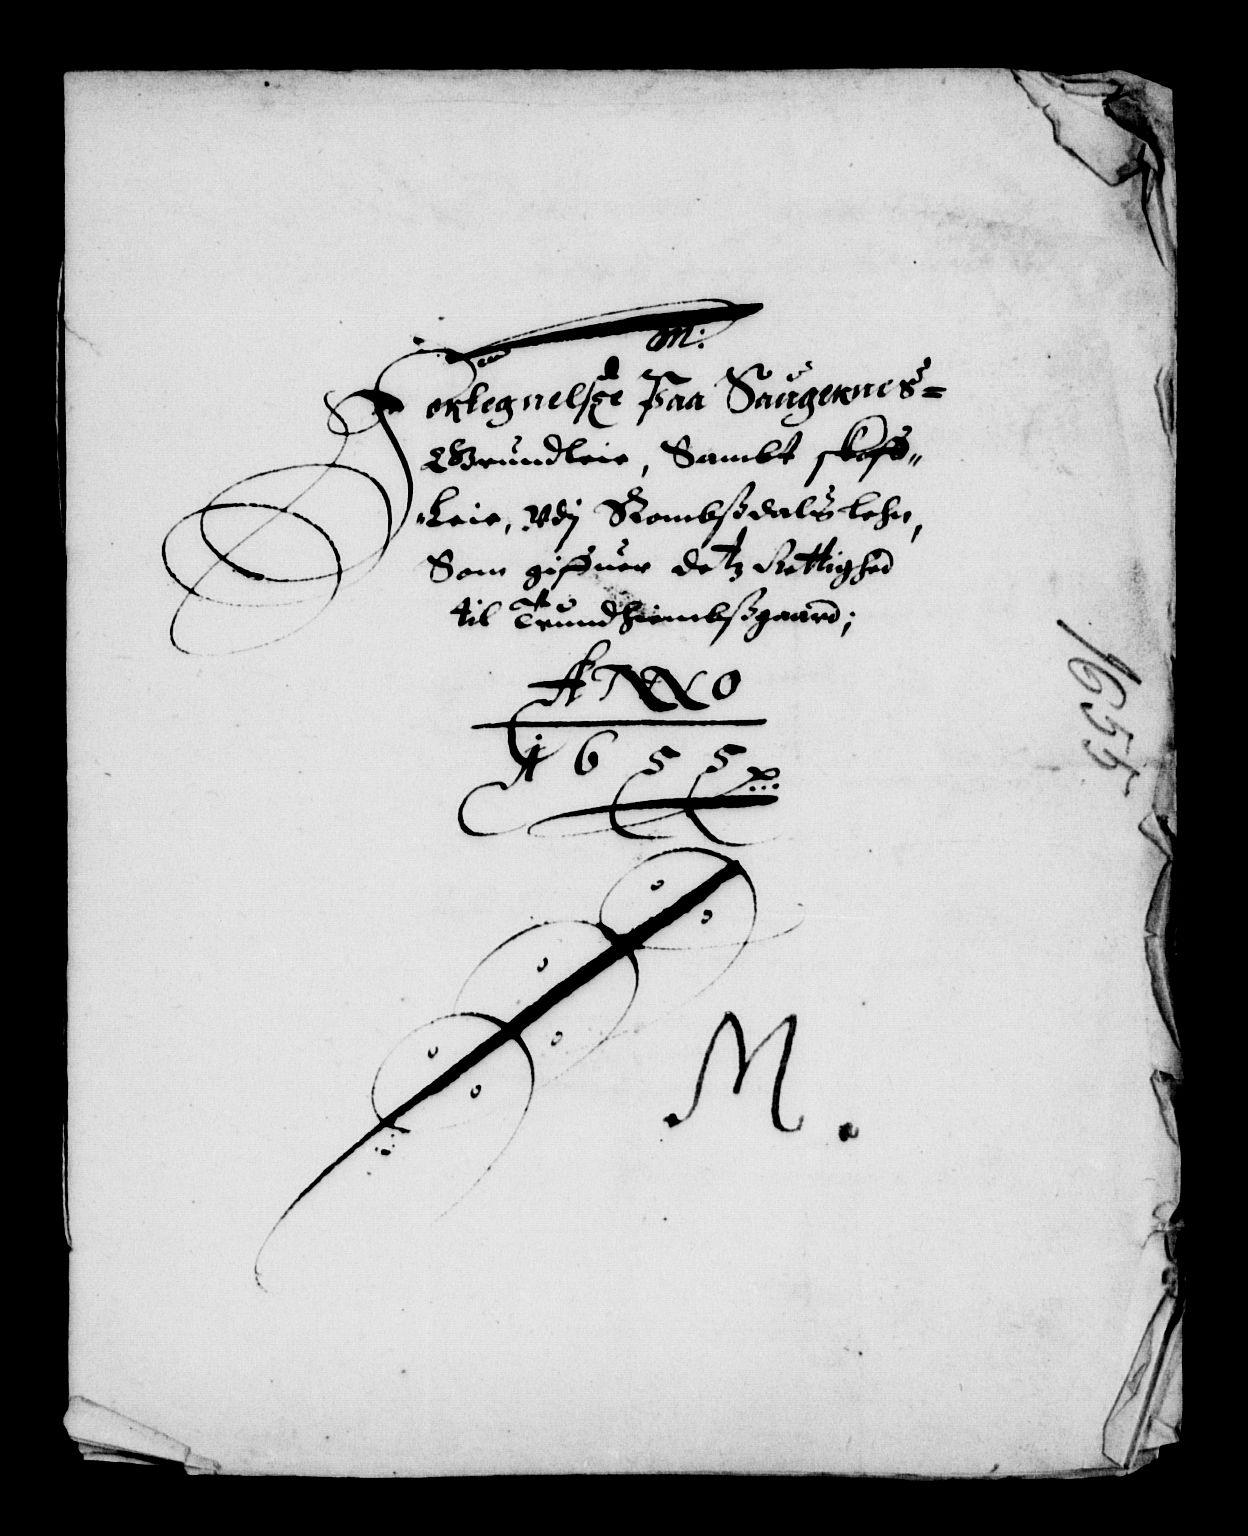 M:
Fortegnelsse paa Saugernes=
Grundleie, Sambt skofs„
Leie, Udj Rombssdals lehn,
Som giffuer detz Rettighed
til Trundhiembssgaard;
ANNO
1655
M.
1655